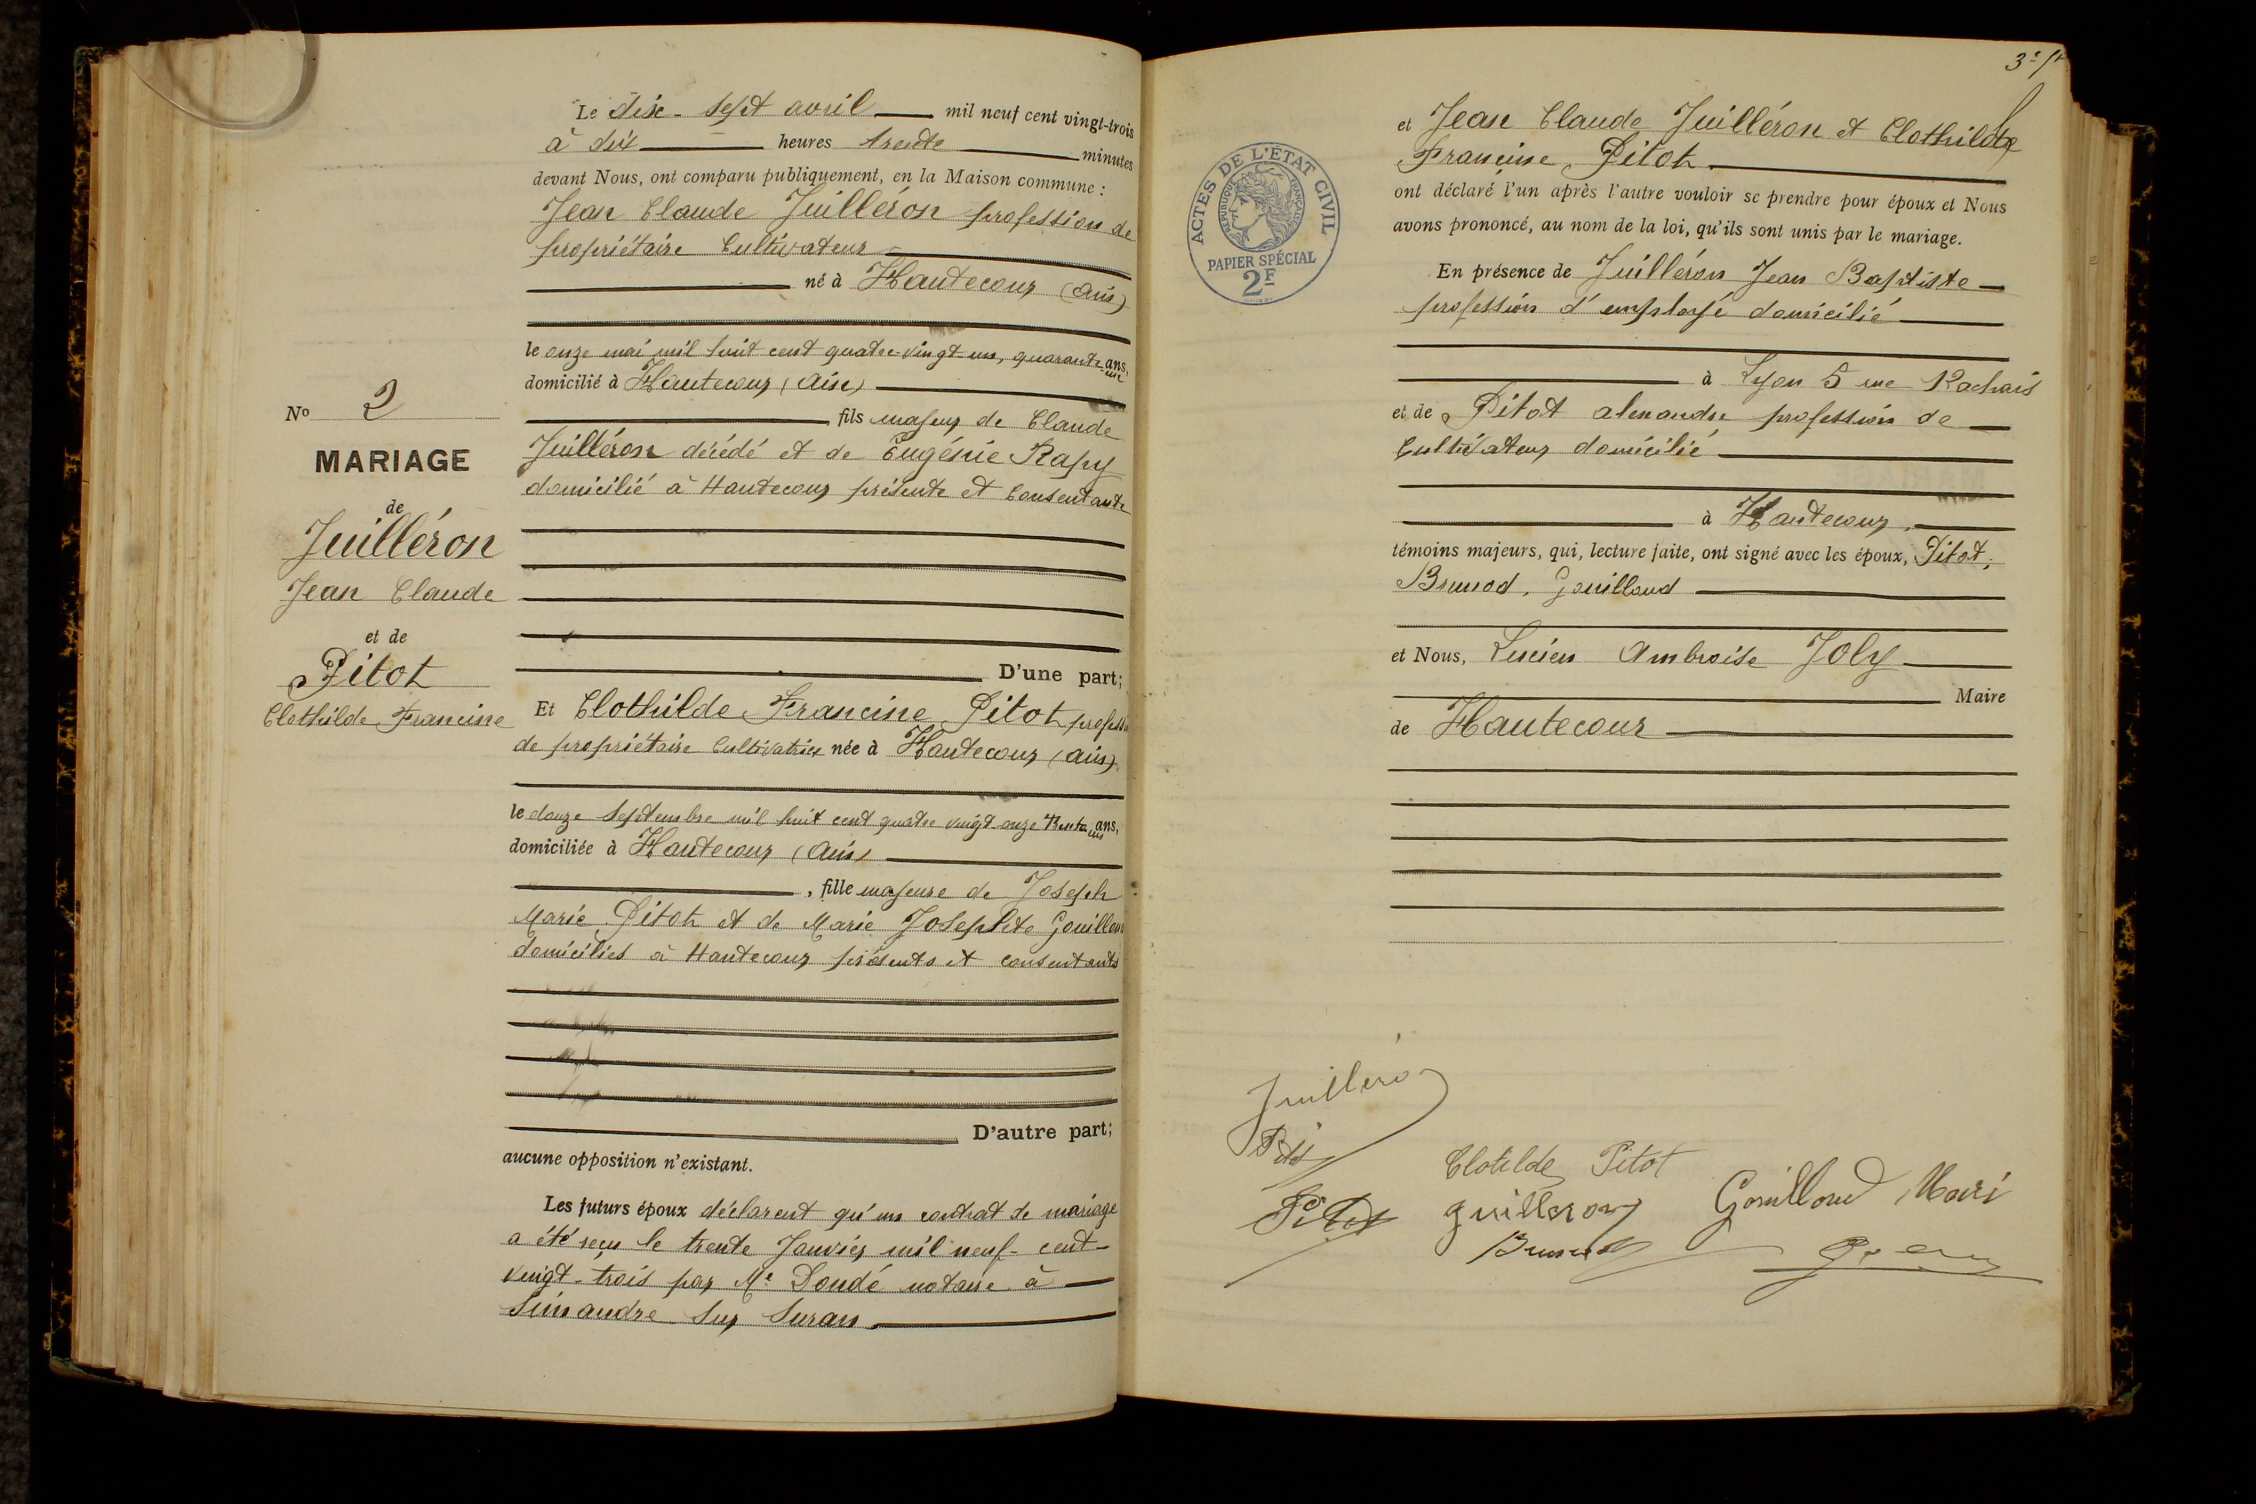 Le dix-sept avril mil neuf cent vingt-trois
à dix heures trente minutes
devant Nous, ont comparu publiquement, en la Maison commune :
Jean Claude Juilléron profession de
propriétaire Cultivateur
né à Hautecour (Ain)
le onze mai mil huit cent quatre-vingt-un, quarante-une ans,
domicilié à Hautecour (Ain)
fils majeur de Claude
Juilléron décédé et de Eugénie Rapy
domicilié à Hautecour présente et Consentante
No 2
MARIAGE
de
Juilléron
Jean Claude
et de
Pitot
Clothilde Francine
D'une part;
Et Clothilde Francine Pitot profess
de propriétaire Cultivatrice née à Hautecour (Ain)
le douze septembre mil huit cent quatre vingt-onze trente un ans,
domiciliée à Hautecour (Ain)
, fille majeure de Joseph
Marie Pitot et de Marie Josephte Gouilloud
domiciliés à Hautecour présents et consentants
D'autre part;
aucune opposition n'existant.
Les futurs époux déclarent qu'un contrat de mariage
a été reçu le trente Janvier mil neuf-cent-
vingt-trois par Me Doudé notaire à
Simandre sur Suran
et Jean Claude Juilléron et Clothilde
Francine Pitot
ont déclaré l'un après l'autre vouloir se prendre pour époux et Nous
avons prononcé, au nom de la loi, qu'ils sont unis par le mariage.
ACTES DE L'ÉTAT CIVIL
RÉPUBLIQUE FRANÇAISE
PAPIER SPÉCIAL
2F
En présence de Juilléron Jean Baptiste
profession d'employé domicilié
à Lyon 5 rue Rachais
et de Pitot alexandre profession de
Cultivateur domicilié
à Hautecour,
témoins majeurs, qui, lecture faite, ont signé avec les époux, Pitot,
Brunod, Gouilloud
et Nous, Lucien Ambroise Joly
Maire
de Hautecour
Juilléron
Pitot
Clotilde Pitot
Pitot guilleron Gouilloud Mari
Brunod